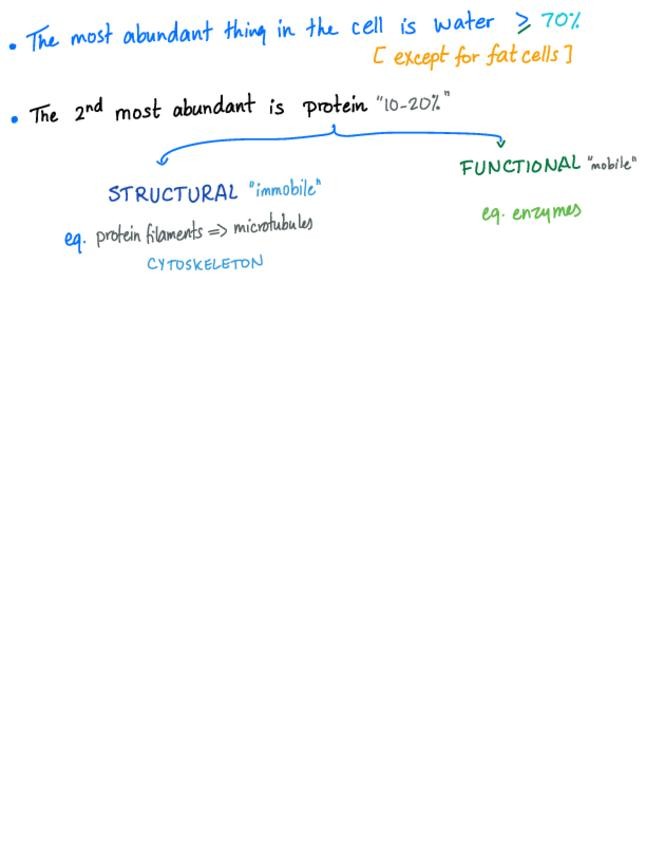 • The most abundant thing in the cell is water ≥ 70%
[ except for fat cells ]
• The 2nd most abundant is protein "10-20%"
STRUCTURAL "immobile"
FUNCTIONAL "mobile"
eg. protein filaments => microtubules
eg. enzymes
CYTOSKELETON